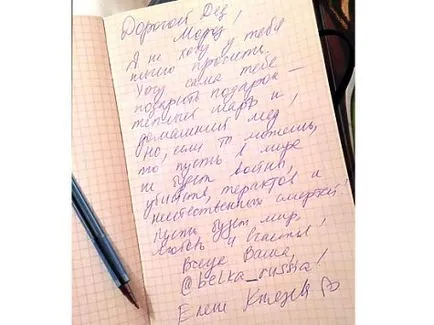 Дорогой Дед
Мороз!
Я не хочу у тебя
ничего просить.
Хочу сама тебе
подарить подарок —
теплый шарф и
домашний мед,
но, если ты можешь,
то пусть в мире
не будет войны,
убийств, терактов и
неестественных смертей!
Пусть будет мир,
любовь и счастье!
Всегда Ваша,
@belka_russia!
Елена Князева